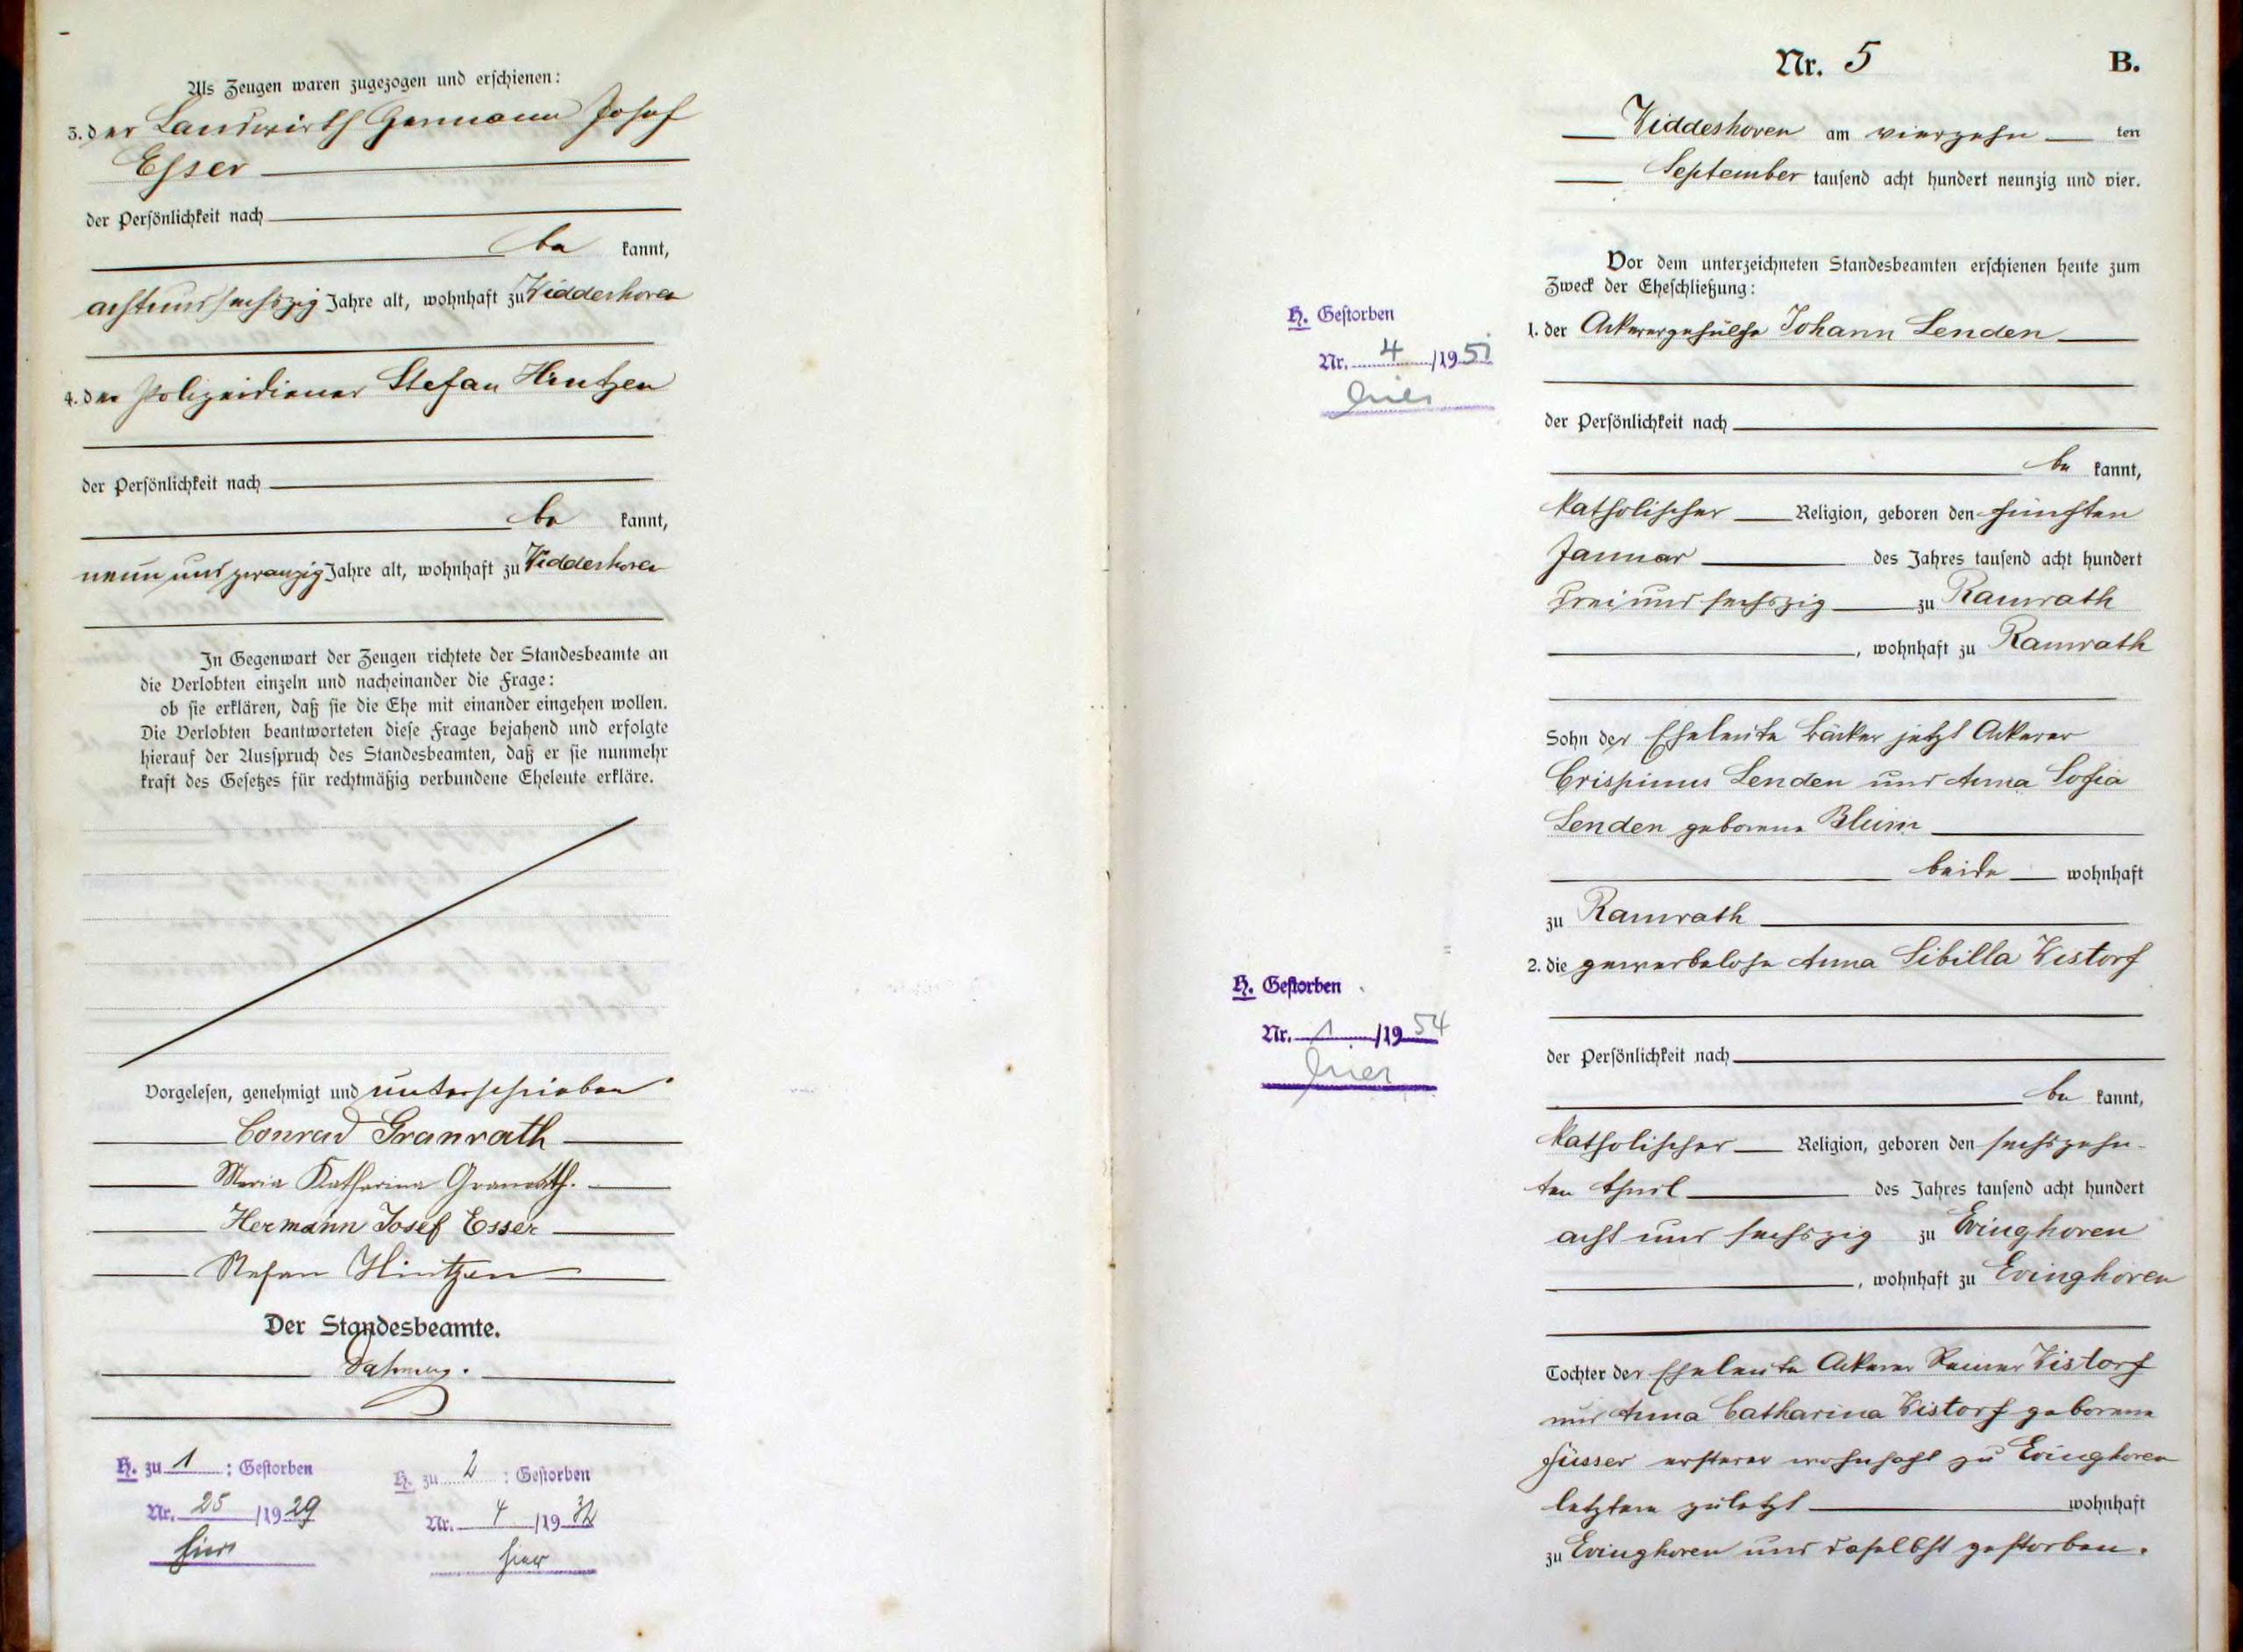 Als Zeugen waren zugezogen und erschienen:
3. der Landwirth Hermann Josef
Esser
der Persönlichkeit nach
be kannt,
achtundsechszig Jahre alt, wohnhaft zu Widdeshoven
4. der Polizeidiener Stefan Hintzen
der Persönlichkeit nach
be kannt,
neun und zwanzig Jahre alt, wohnhaft zu Widdeshoven
In Gegenwart der Zeugen richtete der Standesbeamte an
die Verlobten einzeln und nacheinander die Frage:
ob sie erklären, daß sie die Ehe mit einander eingehen wollen.
Die Verlobten beantworteten diese Frage bejahend und erfolgte
hierauf der Ausspruch des Standesbeamten, daß er sie nunmehr
kraft des Gesetzes für rechtmäßig verbundene Eheleute erkläre.
Vorgelesen, genehmigt und unterschrieben
Conrad Granrath
Maria Katharina Granrath.
Hermann Josef Esser
Stefan Hintzen
Der Standesbeamte.
H. zu 1 : Gestorben
Nr. 25 /1929
hier
H. zu 2 : Gestorben
Nr. 4 /1932
hier
Nr. 5
B.
Widdeshoven am vierzehn ten
September tausend acht hundert neunzig und vier.
Vor dem unterzeichneten Standesbeamten erschienen heute zum
Zweck der Eheschließung:
1. der Ackerergehülfe Johann Lenden
der Persönlichkeit nach
be kannt,
katholischer Religion, geboren den fünften
Januar des Jahres tausend acht hundert
drei und sechszig zu Ramrath
, wohnhaft zu Ramrath
Sohn der Eheleute Bäcker jetzt Ackerer
Crispinus Lenden und Anna Sofia
Lenden geborene Blum
beide wohnhaft
zu Ramrath
2. die gewerbelose Anna Sibilla Vistorf
der Persönlichkeit nach
be kannt,
katholischer Religion, geboren den sechszehn-
ten April des Jahres tausend acht hundert
acht und sechszig zu Evinghoven
, wohnhaft zu Evinghoven
Tochter der Eheleute Ackerer Reiner Vistorf
und Anna Catharina Vistorf geborene
Füsser ersterer wohnhaft zu Evinghoven
letztere zuletzt wohnhaft
zu Evinghoven und daselbst gestorben.
H. Gestorben
Nr. 4 /1951
hier
H. Gestorben
Nr. 1 /1954
hier